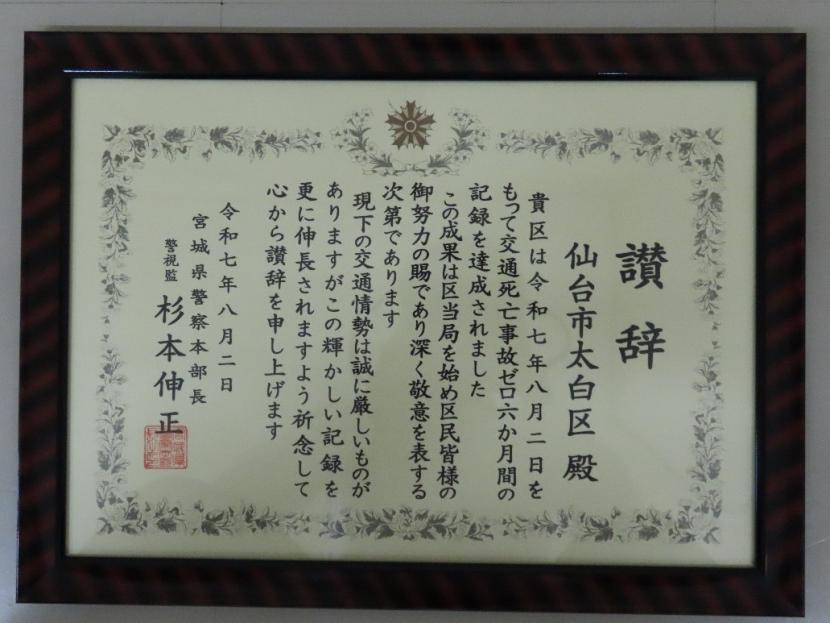 讃辞
仙台市太白区殿
貴区は令和七年八月二日を
もって交通死亡事故ゼロ六か月間の
記録を達成されました
この成果は区当局を始め区民皆様の
御努力の賜であり深く敬意を表する
次第であります
現下の交通情勢は誠に厳しいものが
ありますがこの輝かしい記録を
更に伸長されますよう祈念して
心から讃辞を申し上げます
令和七年八月二日
宮城県警察本部長
警視監 杉本伸正